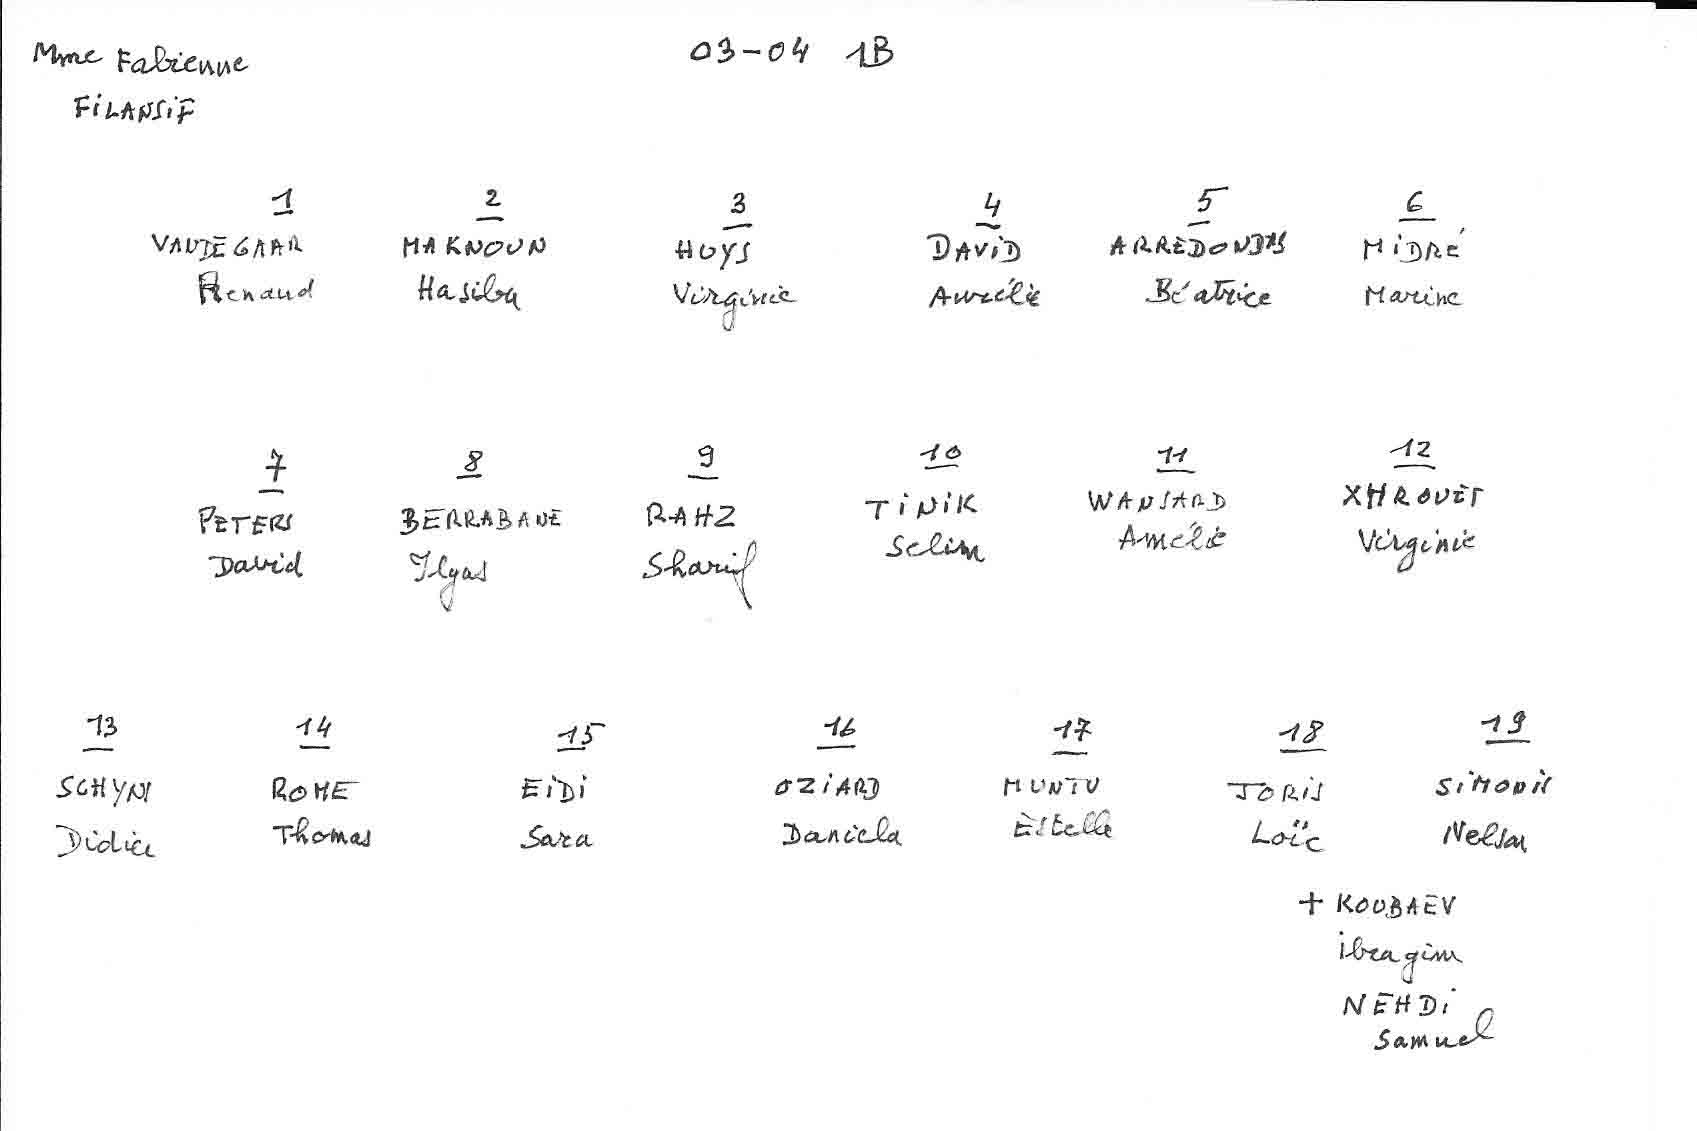 Mme Fabienne
FILANSIF
03-04 1B
1 2 3 4 5 6
VANDEGAAR MAKNOUN HUYS DAVID ARREDONDAS MIDRÉ
Renaud Hasiba Virginie Aurélie Béatrice Marine
7 8 9 10 11 12
PETERS BERRABANE RAHZ TINIK WANSARD XHROUET
David Ilyas Sharif Selim Amélie Virginie
13 14 15 16 17 18 19
SCHYNS ROME EIDI OZIARD MUNTU JORIS SIMONIS
Didier Thomas Sara Daniela Estelle Loïc Nelson
+ KOUBAEV
ibragim
NEHDI
Samuel